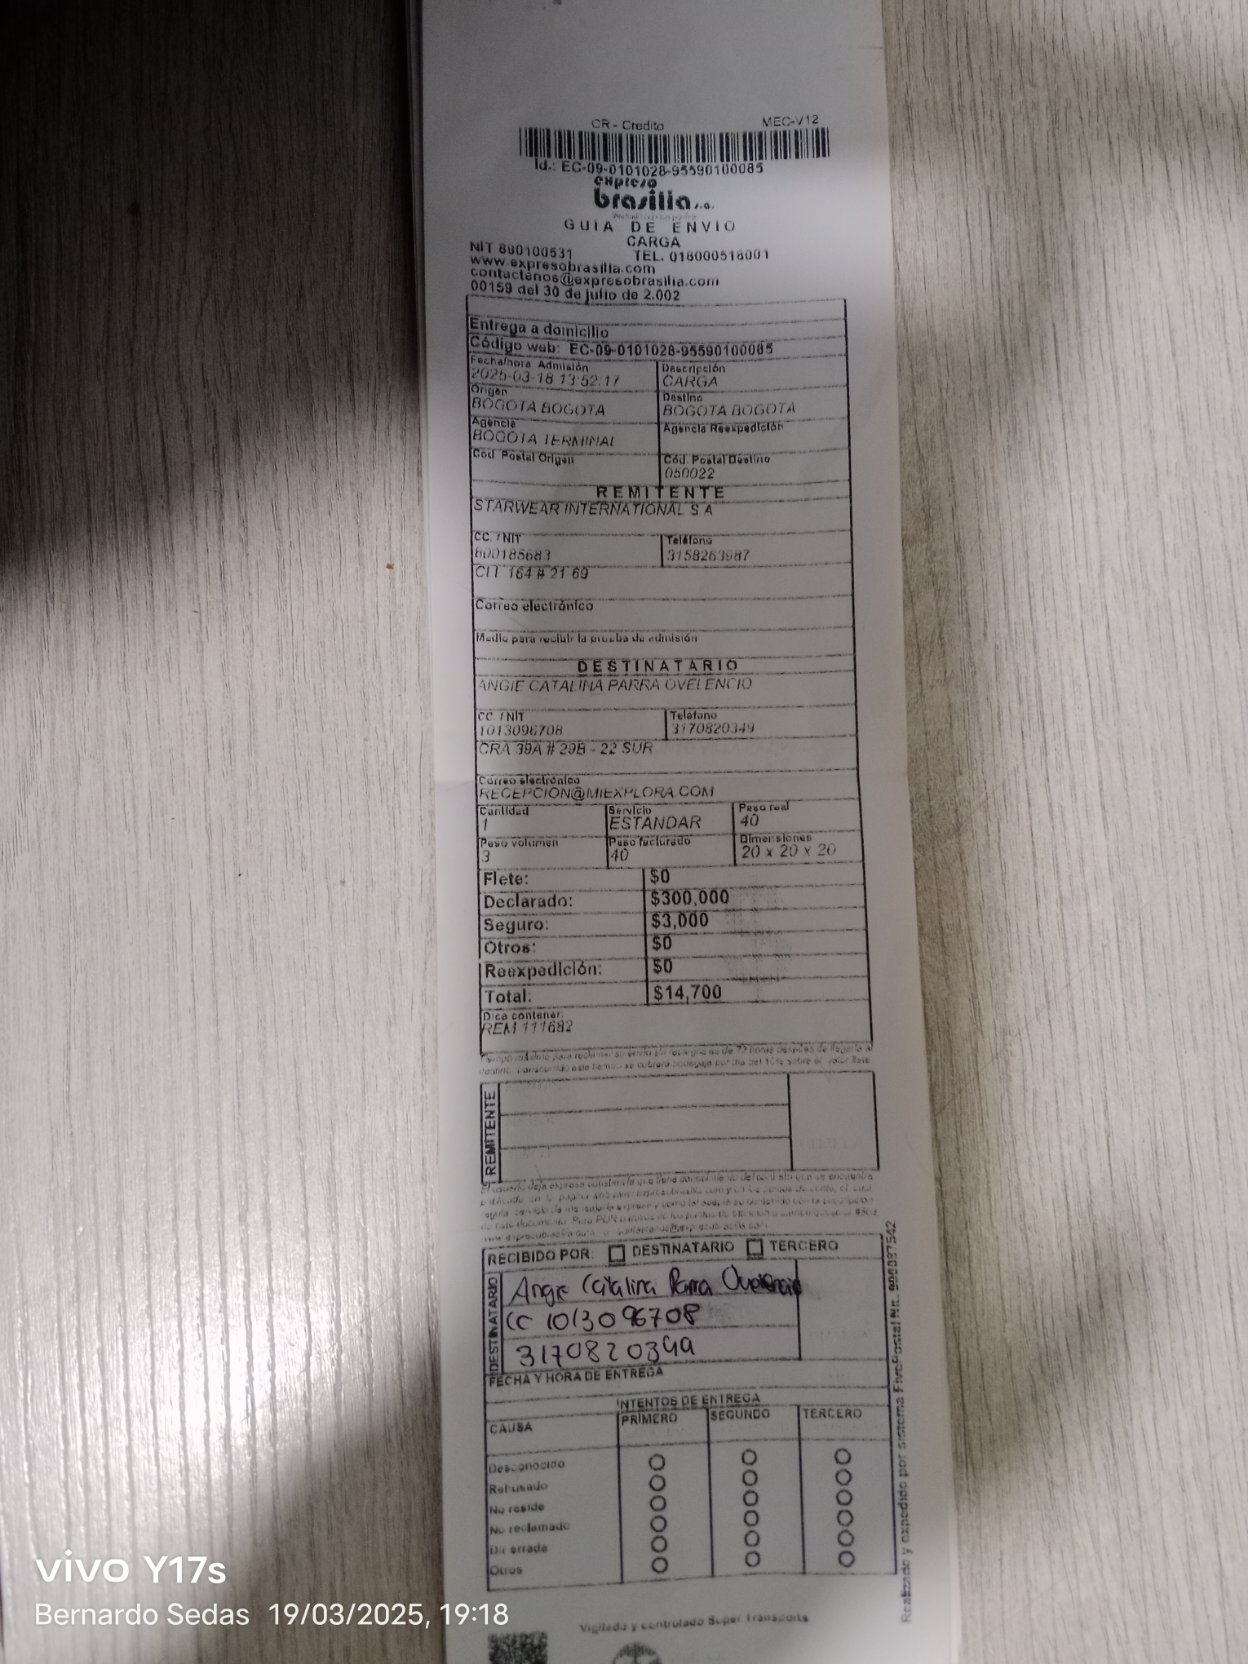 CR - Credito MEC-V12
Id.: EC-09-0101028-95590100085
expreso
brasilia s.a.
GUIA DE ENVIO
CARGA
NIT 890100531 TEL. 018000518001
www.expresobrasilia.com
contactenos@expresobrasilia.com
00159 del 30 de julio de 2.002
Entrega a domicilio
Código web: EC-09-0101028-95590100085
Fecha/hora Admisión Descripción
2025-03-18 13:52:17 CARGA
Origen Destino
BOGOTA BOGOTA BOGOTA BOGOTA
Agencia Agencia Reexpedición
BOGOTA TERMINAL
Cod. Postal Origen Cód. Postal Destino
050022
REMITENTE
STARWEAR INTERNATIONAL S A
CC. / NIT Teléfono
800185683 3158263987
CLL 164 # 21 69
Correo electrónico
Medio para recibir la prueba de admisión
DESTINATARIO
ANGIE CATALINA PARRA OVELENCIO
CC. / NIT Teléfono
1013096708 3170820349
CRA 39A # 29B - 22 SUR
Correo electrónico
RECEPCION@MIEXPLORA.COM
Cantidad Servicio Peso real
1 ESTANDAR 40
Peso volumen Peso facturado Dimensiones
3 40 20 x 20 x 20
Flete: $0
Declarado: $300,000
Seguro: $3,000
Otros: $0
Reexpedición: $0
Total: $14,700
Dice contener:
REM 111682
REMITENTE
RECIBIDO POR: DESTINATARIO TERCERO
DESTINATARIO
Angie Catalina Parra Ovelencio
CC 1013096708
3170820349
FECHA Y HORA DE ENTREGA
INTENTOS DE ENTREGA
CAUSA PRIMERO SEGUNDO TERCERO
Desconocido
Rehusado
No reside
No reclamado
Dir errada
Otros
Realizado y expedido por sistema FivePostal Nit.
Vigilado y controlado Super Transporte
vivo Y17s
Bernardo Sedas 19/03/2025, 19:18